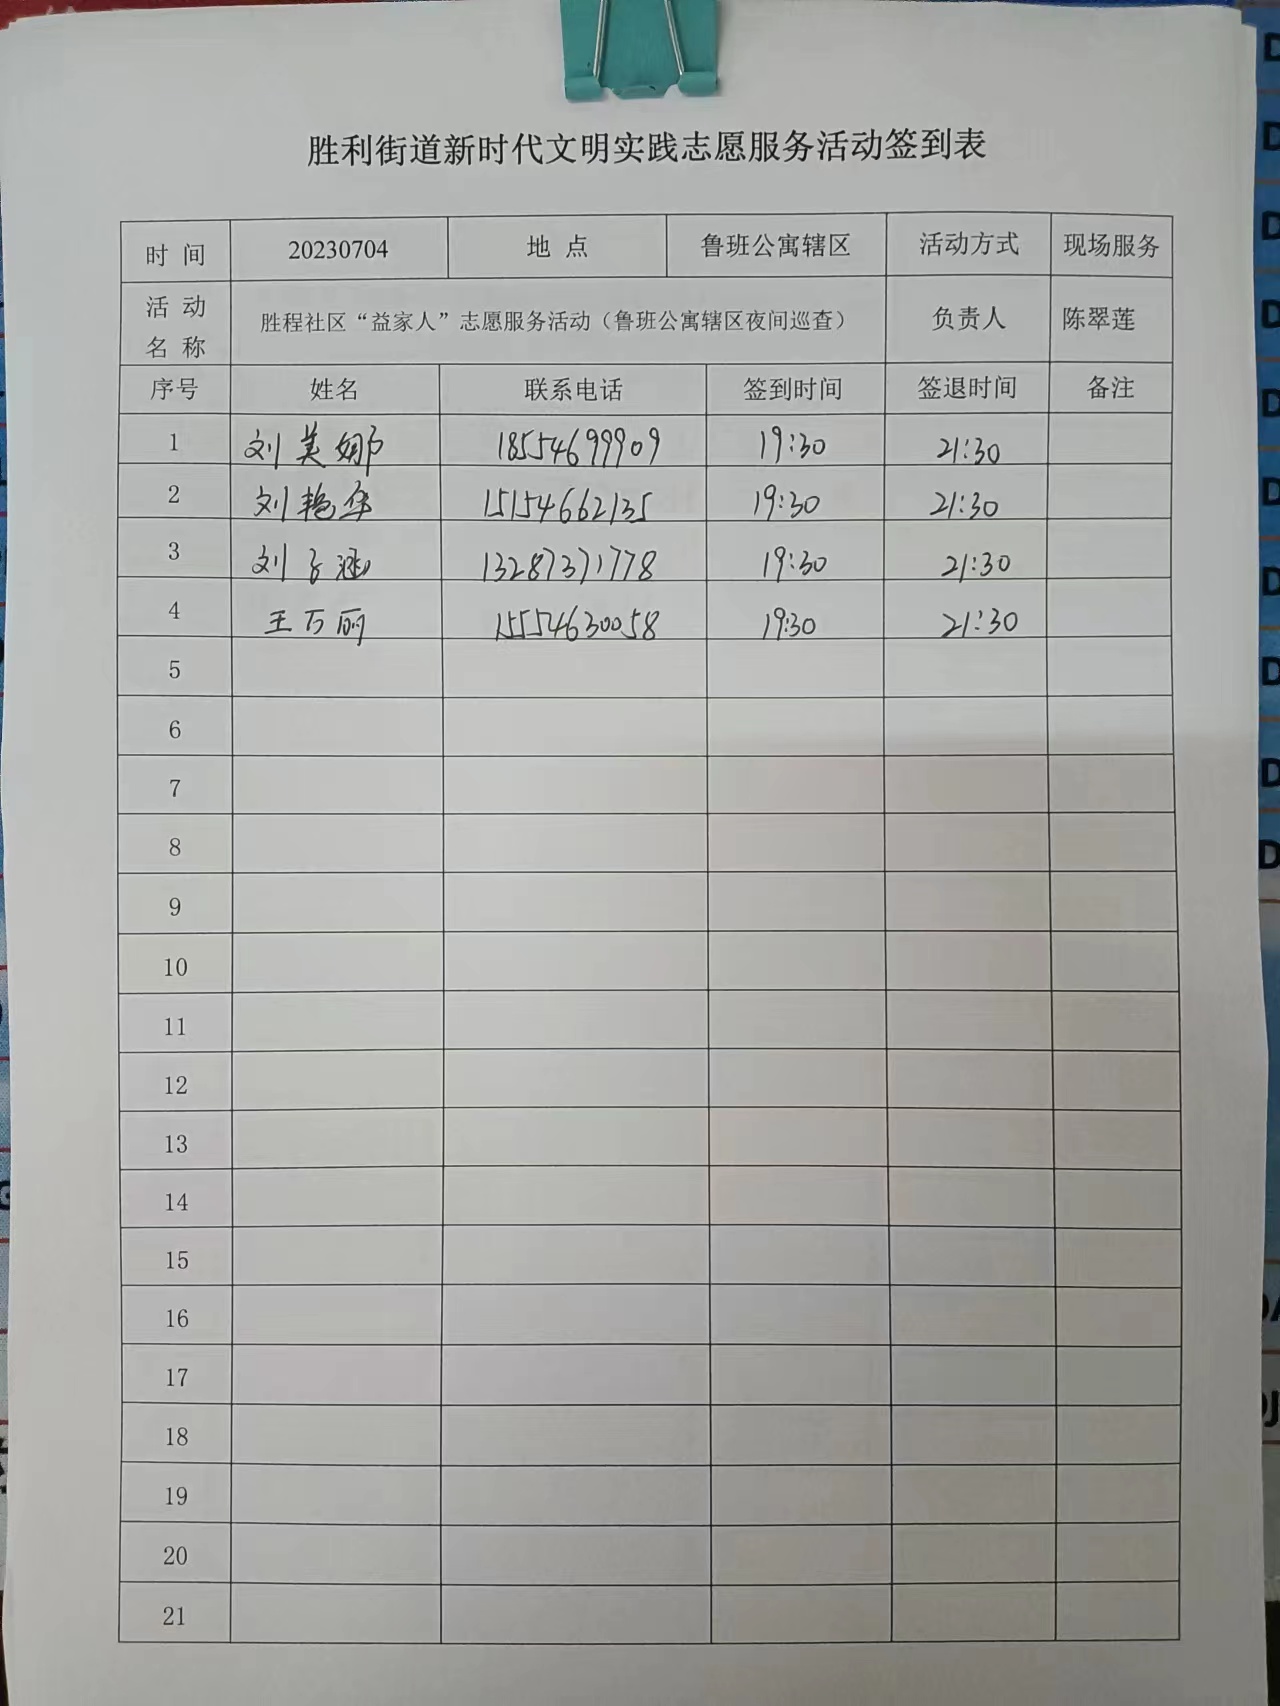 胜利街道新时代文明实践志愿服务活动签到表
时 间 20230704 地 点 鲁班公寓辖区 活动方式 现场服务
活 动
名 称 胜程社区“益家人”志愿服务活动（鲁班公寓辖区夜间巡查） 负责人 陈翠莲
序号 姓名 联系电话 签到时间 签退时间 备注
1 刘美娜 18554699909 19:30 21:30
2 刘艳华 15154662135 19:30 21:30
3 刘子涵 13287371778 19:30 21:30
4 王万丽 15554630058 19:30 21:30
5
6
7
8
9
10
11
12
13
14
15
16
17
18
19
20
21